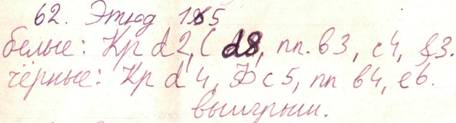 62. Этюд 165
белые: Кр d2, С d8, пп. b3, c4, g3.
чёрные: Кр d4, Ф c5, пп b4, e6.
выигрыш.